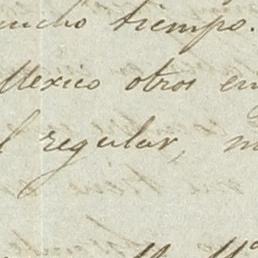 mucho tiempo.
Mexico otros en
l regular, m